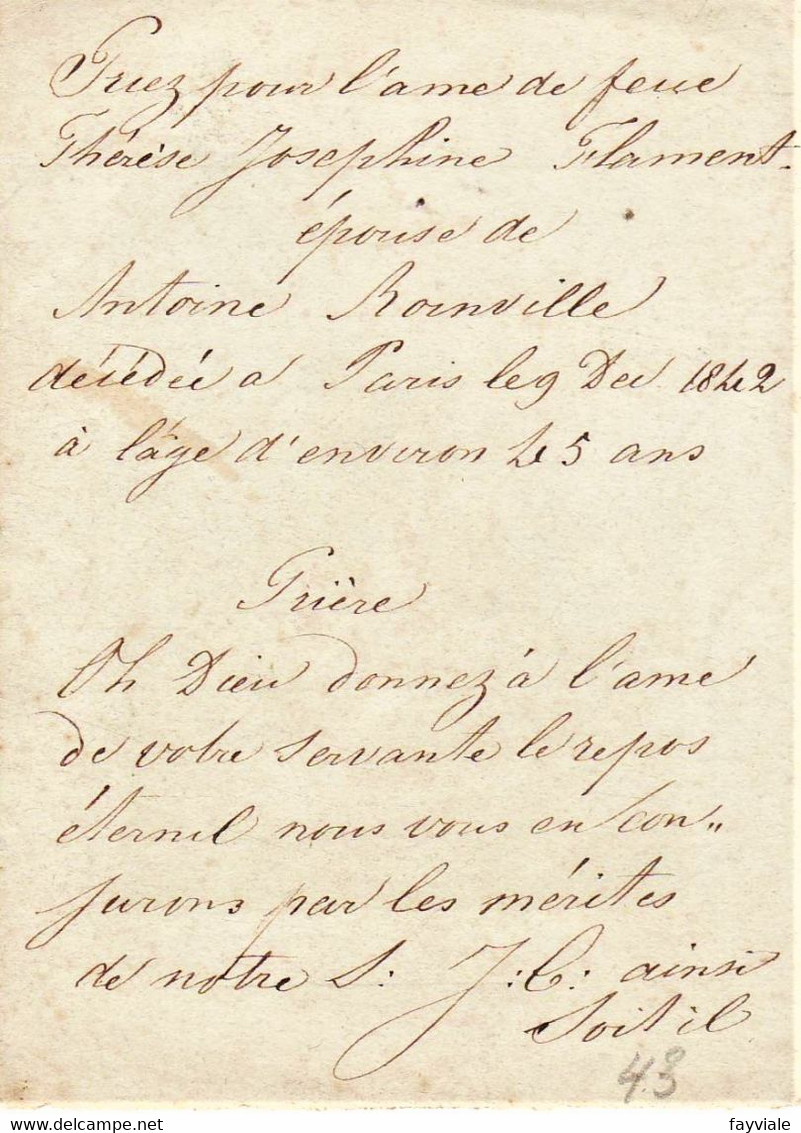 Priez pour l'ame de feue
Thérèse Josephine Flament
épouse de
Antoine Roinville
décédée a Paris le 9 Dec 1842
à l'âge d'environ 45 ans
Prière
Oh Dieu donnez à l'ame
de votre servante le repos
éternel nous vous en con„
jurons par les mérites
de notre S: J:C: ainsi
soit il
43
delcampe.net
fayviale